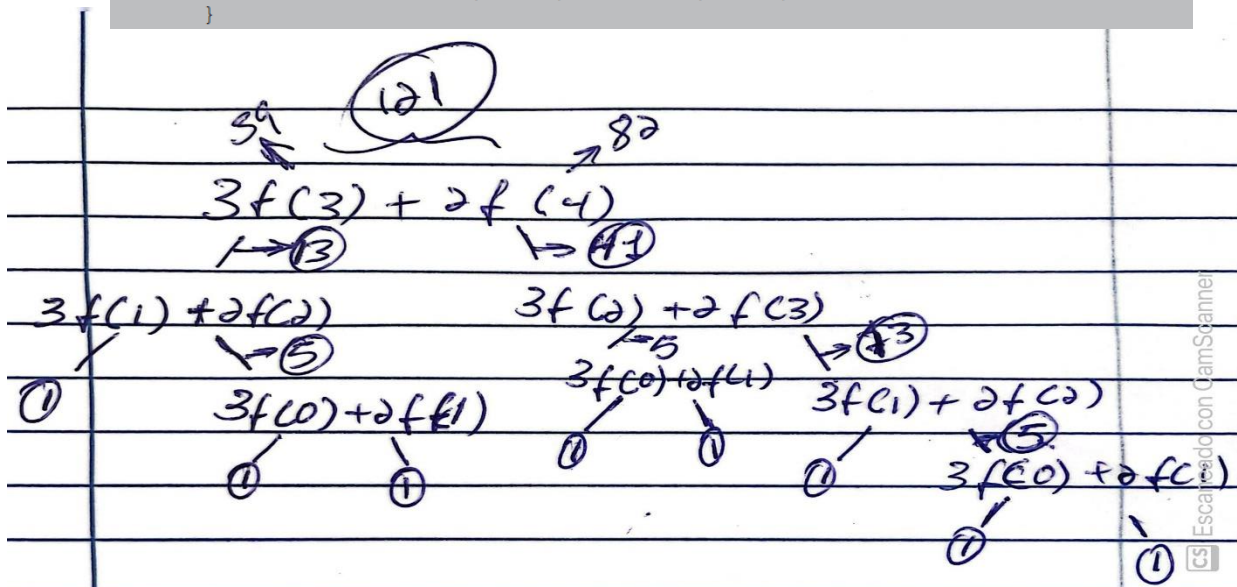 }
121
39 82
3f(3) + 2f(4)
13 41
3f(1) + 2f(2) 3f(2) + 2f(3)
5 5 13
1 3f(0) + 2f(1) 3f(0) + 2f(1) 3f(1) + 2f(2)
1 1 1 1 1 5
3f(0) + 2f(1)
1 1
CS Escaneado con CamScanner